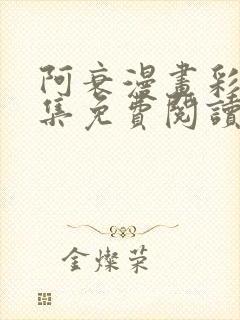 阿衰漫畫彩
集免費閱讀
金燦荣